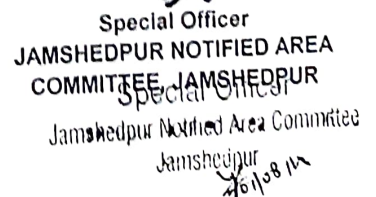 Special Officer
JAMSHEDPUR NOTIFIED AREA
COMMITTEE, JAMSHEDPUR
Special Officer
Jamshedpur Notified Area Committee
Jamshedpur